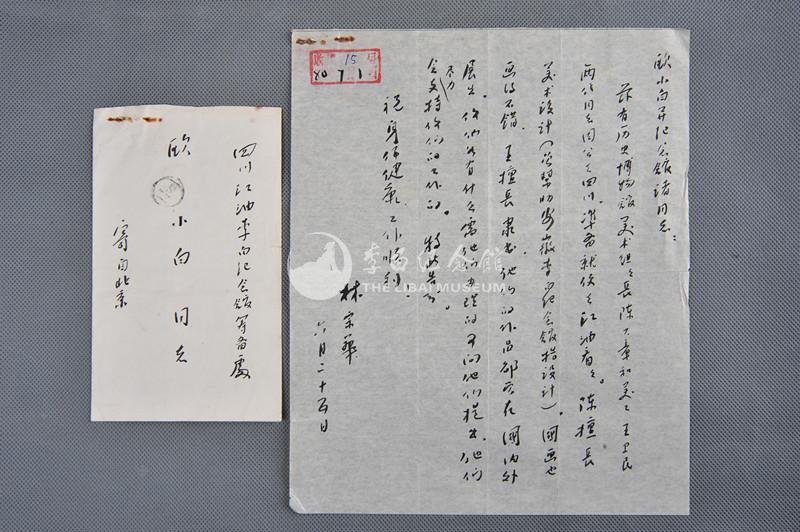 欧小白并纪念馆诸同志：
兹有历史博物馆美术组组长陈大章和美工王卫民
两位同志因公去四川，准备就便去江油看看。陈擅长
美术设计（曾帮助安徽李白纪念馆搞设计）。国画也
画得不错。王擅长隶书。他们的作品都曾在国内外
展出。你们如有什么需他们办理的可向他们提出，他们
会尽力支持你们的工作的。特此告
祝身体健康，工作顺利！
林宗华
六月二十五日
收 15 号
80 7 1
四川江油李白纪念馆筹备处
欧小白同志
寄自北京
李白纪念馆
THE LIBAI MUSEUM